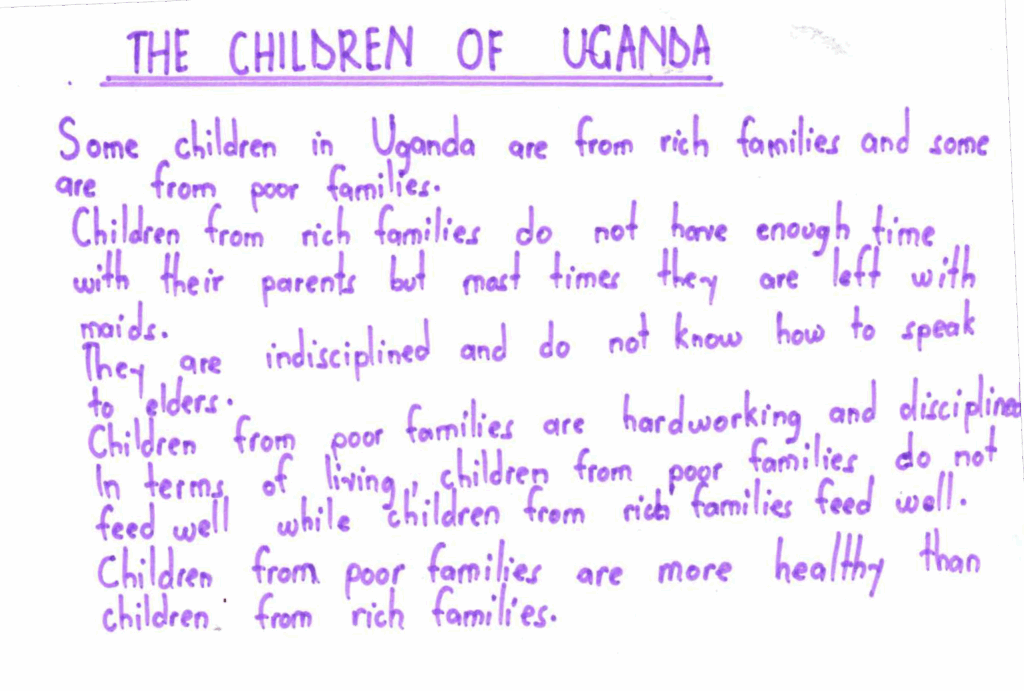 THE CHILDREN OF UGANDA
Some children in Uganda are from rich families and some
are from poor families.
Children from rich families do not have enough time
with their parents but most times they are left with
maids.
They are indisciplined and do not know how to speak
to elders.
Children from poor families are hardworking and disciplined
In terms of living, children from poor families do not
feed well while children from rich families feed well.
Children from poor families are more healthy than
children from rich families.